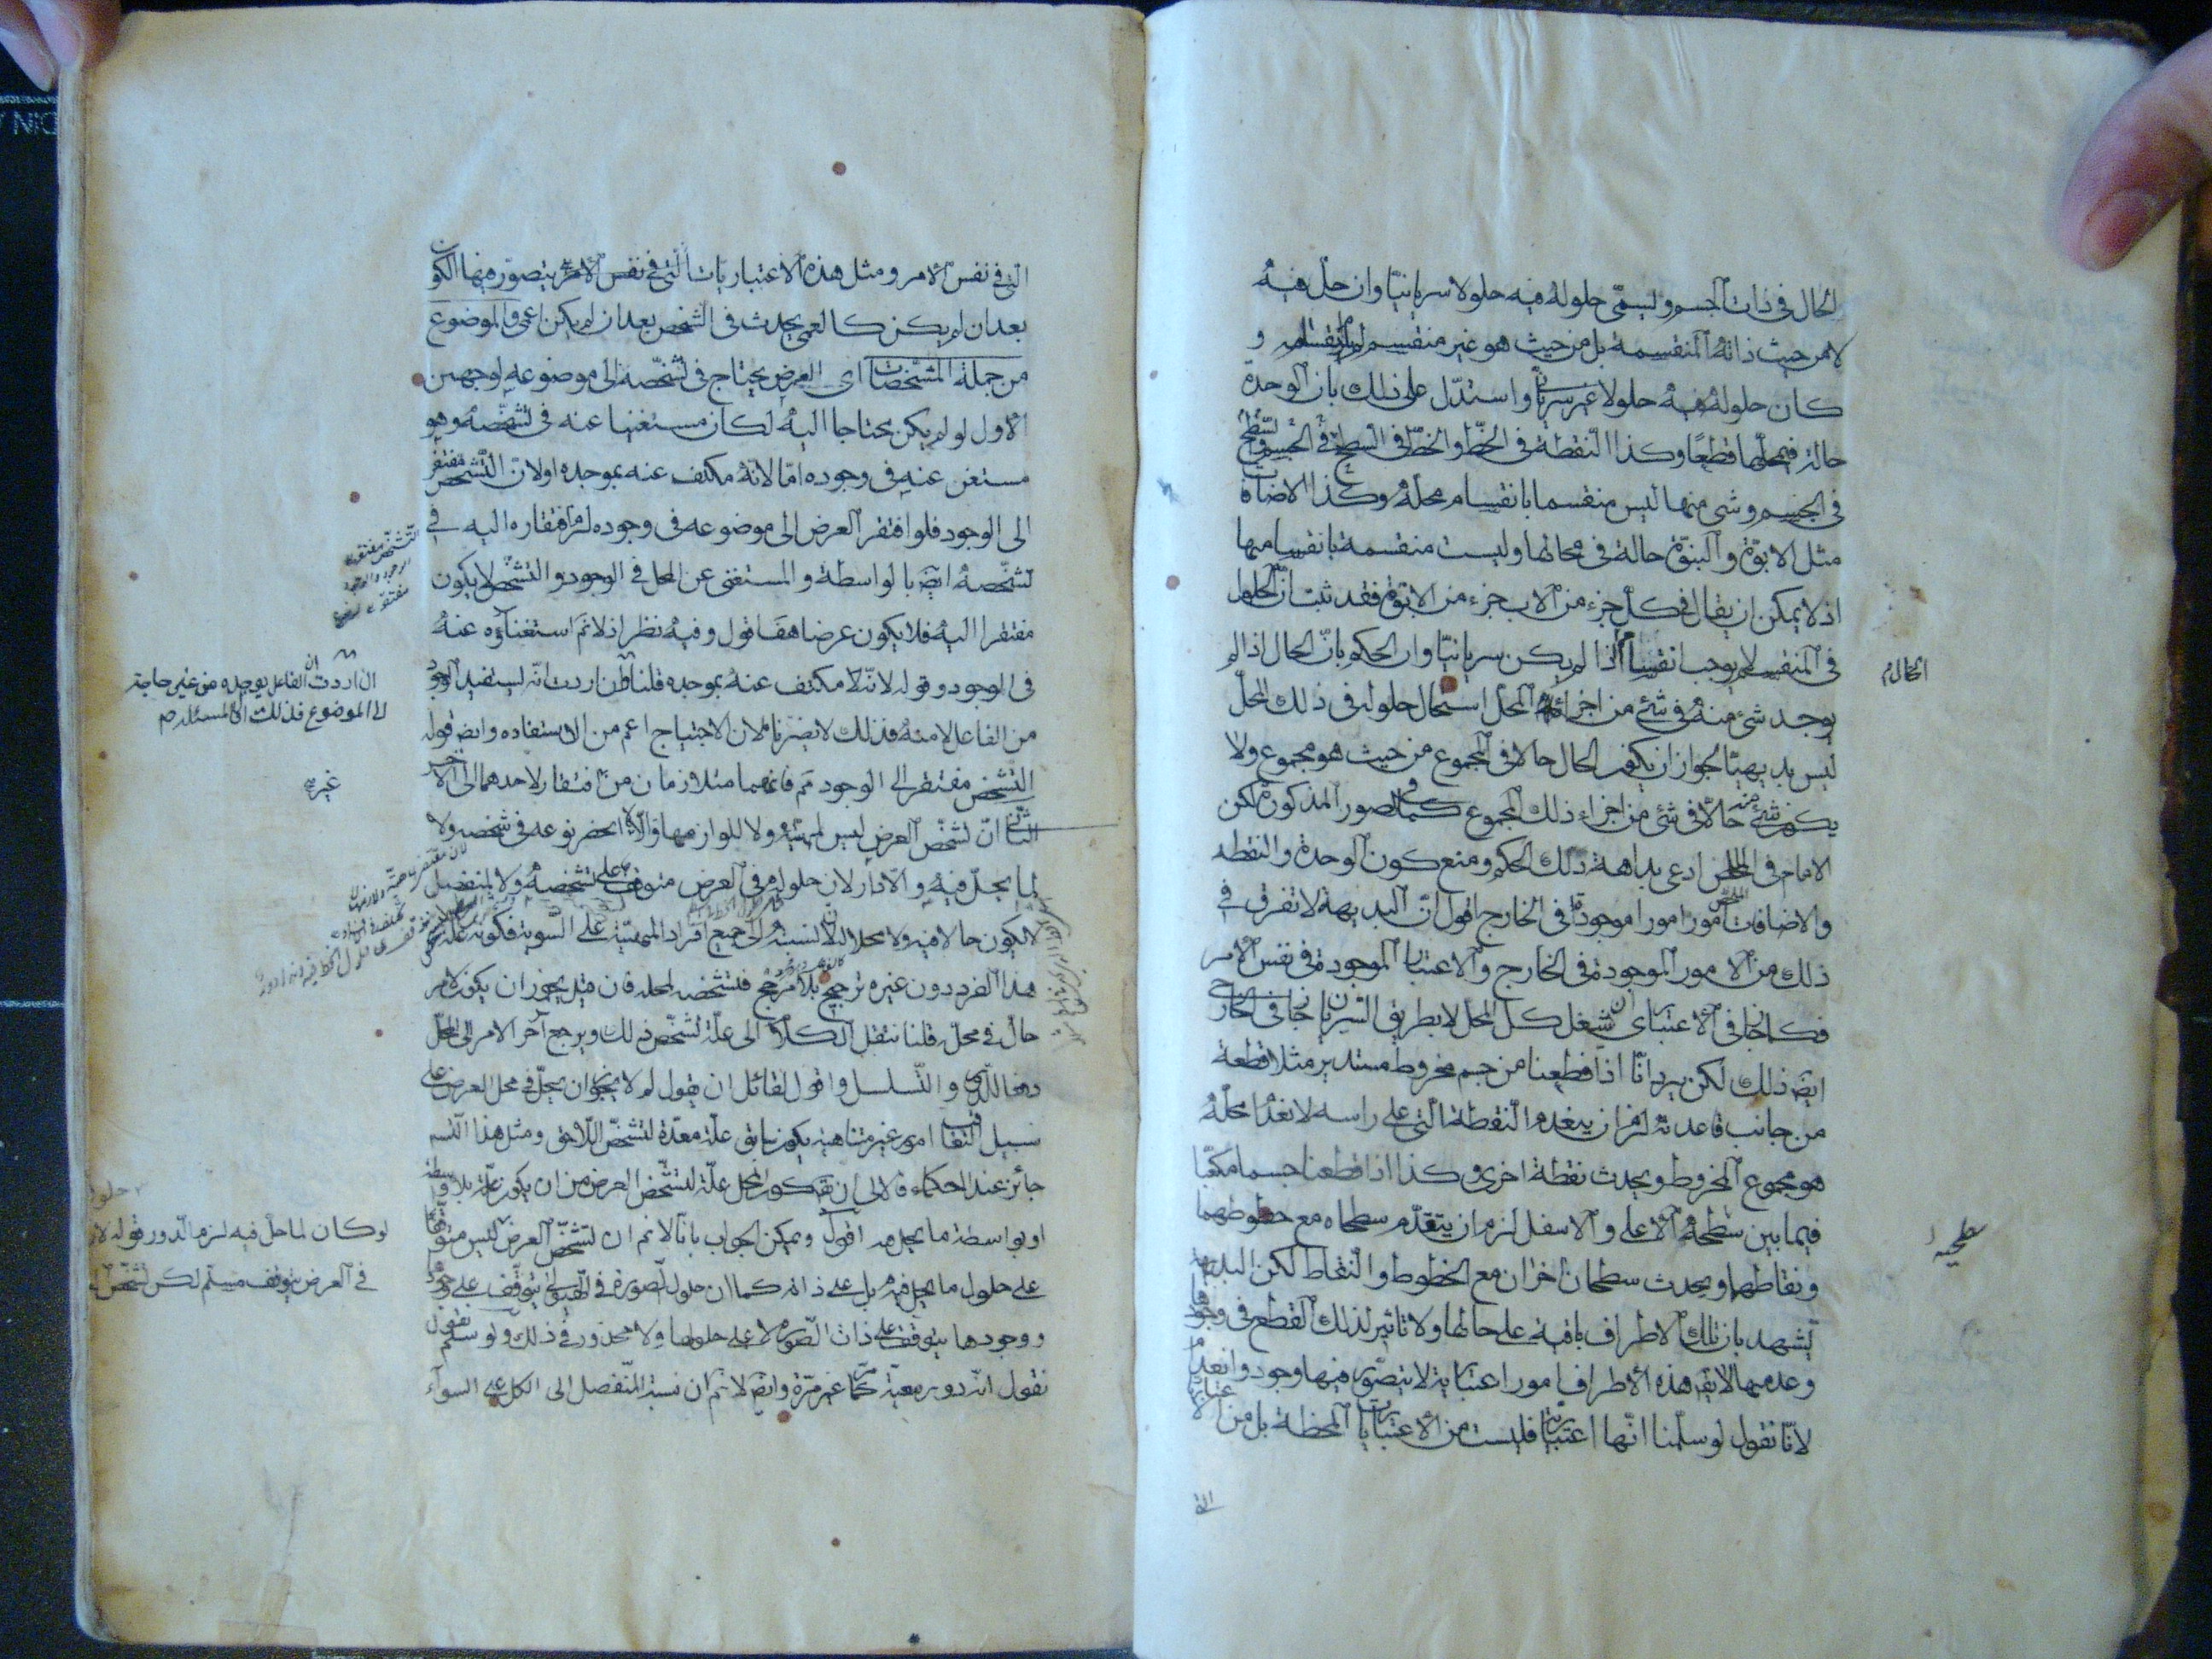 الحال فى ذات الجسم ويسمّى حلوله فيه حلولا سريانيّا وان حلّ فيه
لا من حيث ذاته المنقسمة بل من حيث هو غير منقسم لم ينقسم و
كان حلوله فيه حلولا غير سريانى واستدلّ على ذلك بان الوحدة
حالة فى محلّها قطعًا وكذا النّقطة فى الخطّ والخطّ فى السّطح والسّطح
فى الجسم وشى منها ليس منقسما بانقسام محلّه وكذا الاضافات
مثل الابوّة والبنوّة حالة فى محالها وليست منقسمة بانقسامها
اذ لا يمكن ان يقال فى كلّ جزء من الاب جزء من الابوّة فقد ثبت انّ الحلول
فى المنقسم لا يوجب انقسام الحال اذا لم يكن سريانيّا وان الحكم بانّ الحال اذا لم
يوجد شئ منه فى شئ من اجزاء المحلّ استحال حلوله فى ذلك المحلّ
ليس بديهيّا لجواز ان يكون الحال حالا فى المجموع من حيث هو مجموع ولا
يكون شئ منه حالّا فى شئ من اجزاء ذلك المجموع كما فى الصور المذكورة لكن
الامام فى الملخص ادعى بداهة ذلك الحكم ومنع كون الوحدة والنقطة
والاضافات امورا موجودة فى الخارج اقول انّ البديهة لا تفرق فى
ذلك من الامور الموجودة فى الخارج والاعتباريات الموجودة فى نفس الامر
فكما جاز فى الاعتبارى ان يشغل كل المحل لا بطريق السّريان جاز فى الخارجى
ايضا ذلك لكن يرد انّا اذا قطعنا من جسم مخروط مستدير مثلا قطعة
من جانب قاعدته لزم ان ينعدم النّقطة الّتى على راسه لانعدام محلّه
هو مجموع المخروط ويحدث نقطة اخرى وكذا اذا قطعنا جسما مكعّبا
فيما بين سطحيه الاعلى والاسفل لزم ان ينعدم سطحاه مع خطوطهما
ونقاطهما ويحدث سطحان اخران مع الخطوط والنّقاط لكن البديهة
تشهد بان تلك الاطراف باقية على حالها ولا تاثير لذلك القطع فى وجودها
وعدمها لا يقال هذه الاطراف امورا اعتبارية لا يتصوّر فيها وجود وانعدام
لانّا نقول لو سلّمنا انّها اعتبارية فليست من الاعتباريات المحضة بل من الاعتباريات
الحال م
سطحيه
التى
الّتى فى نفس الامر ومثل هذه الاعتباريات الّتى فى نفس الامر يتصوّر فيها الكون
بعد ان لم يكن كالعمى يحدث فى الشخص بعد ان لم يكن اعمى والموضوع
من جملة المشخّصات اى العرض يحتاج فى تشخّصه الى موضوعه لوجهين
الاول لو لم يكن محتاجا اليه لكان مستغنيا عنه فى تشخّصه وهو
مستغن عنه فى وجوده امّا لانّه مكتف عنه بموجده او لانّ التّشخّص مفتقر
الى الوجود فلو افتقر العرض الى موضوعه فى وجوده لزم افتقاره اليه فى
تشخّصه ايضا بالواسطة والمستغنى عن المحل فى الوجود والتشخّص لا يكون
مفتقرا اليه فلا يكون عرضا هف اقول وفيه نظر اذ لا نم استغناؤه عنه
فى الوجود وقوله لانّه مكتف عنه بموجده قلنا ان اردت انّه يستفيد الوجود
من الفاعل لا منه فذلك لا يضرنا لان الاحتياج اعم من الاستفاده وايضا قوله
التشخّص مفتقر الى الوجود مم فانهما متلازمان من غير افتقار لاحدهما الى الاخر
الثّانى انّ تشخّص العرض ليس لمهيّته ولا للوازمها والّا لانحصر نوعه فى شخصه ولا
لما يحلّ فيه والّا دار لان حلوله فى العرض متوقف على تشخّصه ولا لمنفصل
لا يكون حالا فيه ولا محلا له لان نسبته الى جميع افراد المهيّة على السّوية فكونه علّة تشخّص
هذا الفرد دون غيره ترجيح بلا مرجّح فتشخّصه لمحله فان قيل يجوز ان يكون لامر
حالّ فى محلّه قلنا ننقل الكلام الى علّة تشخّص ذلك ويرجع آخر الامر الى المحلّ
دفعا للدّور والتّسلسل واقول لقائل ان يقول لم لا يجوز ان يحلّ فى محل العرض على
سبيل التّعاقب امور غير متناهية يكون كل سابق علّة معدّة لتشخّص اللّاحق ومثل هذا التّسلسل
جائز عند الحكماء فالاولى ان يقال كون المحل علّة لتشخّص العرض من ان يكون علّة بلا واسطة
او بواسطة ما يحل فيه اقول ويمكن الجواب بانّا لا نم ان تشخّص العرض ليس متوقّفا
على حلول ما يحل فيه بل على ذاته كما ان حلول الصّورة فى الهيولى يتوقّف على وجودها
ووجودها يتوقف على ذات الصّورة لا على حلولها ولا محذور فى ذلك ولو سلّم نقول
نقول انّه دور معيّة كما غير مرّة وايضا لا نم ان نسبة المنفصل الى الكل على السوآء
ان اردت ان الفاعل يوجده من غير حاجة
الى الموضوع فذلك اول المسئلة م
غير
لو كان لما حلّ فيه لزم الدّور قوله لان
فى العرض يتوقف مسلّم لكن تشخّص